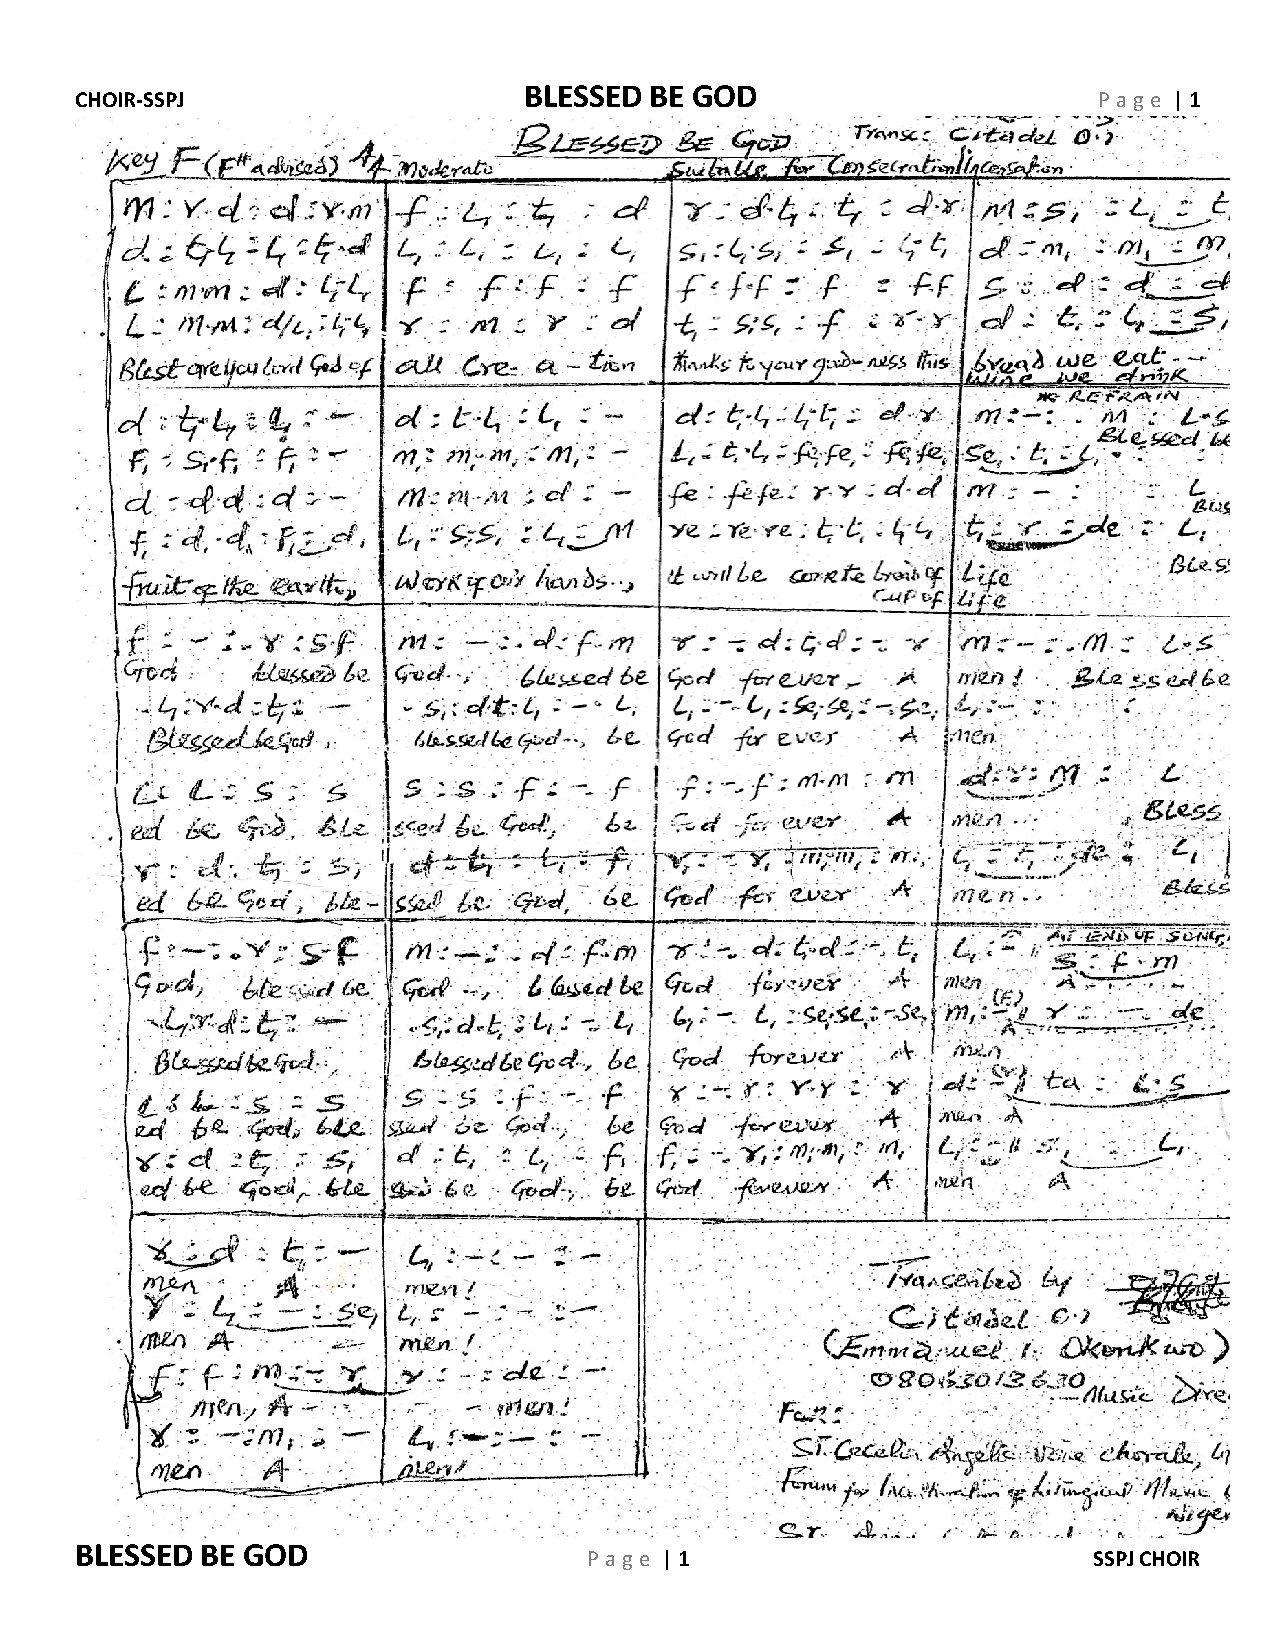 CHOIR-SSPJ BLESSED BE GOD Page | 1
BLESSED BE GOD Transc: Citadel O.?
Key F (F# advised) 4/4 Moderato Suitable for Consecration/Incensation
m : r.d : d : r.m | f : l, : t, : d | r : d.t, : t, : d.r | m : s, : l, : t,
d : t,l, : l, : t,.d | l, : l, : l, : l, | s, : l,.s, : s, : l,.t, | d : m, : m, : m,
L : m.m : d : l,.l, | f : f : f : f | f : f.f : f : f.f | s : d : d : d
L : m.m : d/l, : l,.l, | r : m : r : d | t, : s,.s, : f : r.r | d : t, : l, : s,
Blest are you Lord God of | all Cre- a - tion | thanks to your good-ness this | bread we eat ---
wine we drink
REFRAIN
d : t,.l, : l, : - | d : t.l, : l, : - | d : t,.l, : l,.t, : d.r | m : - : . m : l.s
Blessed be
f, : s,.f, : f, : - | m, : m,.m, : m, : - | l, : t,.l, : fe,fe, : fe,fe, | se, : t, : l, .
d : d.d : d : - | m : m.m : d : - | fe : fe fe : r.r : d.d | m : - : L
Bus
f, : d,.d, : f, : d, | l, : s,.s, : l, : m | re : re.re : t,.t, : l,.l, | t, : r : de : l,
fruit of the earth, | work of our hands.., | it will be | Life Bless
Cup of | Life
f : - : . r : s.f | m : - : . d : f.m | r : - . d : t,.d : - . r | m : - : . m : l.s
God blessed be | God.., blessed be | God forever A | men! Blessed be
. l, : r.d : t, : - | . s, : d.t : l, : - . l, | l, : - . l, : se,.se, : - . se, | l, : - :
Blessed be God, | blessed be God.., be | God for ever A | men
l : l : s : s | s : s : f : - . f | f : - . f : m.m : m | d : r : m : l
ed be God, Ble | ssed be God, be | God for ever A | men... Bless
r : d : t, : s, | d : t, : l, : f, | r, : - . r, : m,.m, : m, | l, : t, : de : l,
ed be God, ble- | ssed be God, be | God for ever A | men.. Bless
AT END OF SONG
f : - : . r : s.f | m : - : . d : f.m | r : - . d : t,.d : - . t, | l, : - s : f . m
God, blessed be | God .., blessed be | God forever A | men A
. l,.r.d : t, : - | . s, : d.t, : l, : - . l, | l, : - . l, : se,.se, : - . se, | m, : - r : - . de
Blessed be God.. | Blessed be God, be | God forever A | men A
l : l : s : s | s : s : f : - . f | r : - . r : r.r : r | d : - ta : l.s
ed be God, ble | ssed be God, be | God forever A | men A
r : d : t, : s, | d : t, : l, : f, | f, : - . r, : m,.m, : m, | l, : - s, : l,
ed be God, ble | ssed be God, be | God forever A | men A
r : d : t, : - | l, : - : - : -
men A | men!
r : l, : - : se, | l, : - : - : -
men A | men!
f : f : m : - r | r : - : de : -
men, A - | - men!
r : - : m, : - | l, : - : - : -
men A | men!
Transcribed by
Citadel O.?
(Emmanuel I. Okonkwo)
Music Dire
For:
St. Cecelia Angelic Voice Chorale,
Forum for Inculturation of Liturgical Music
Niger
BLESSED BE GOD Page | 1 SSPJ CHOIR